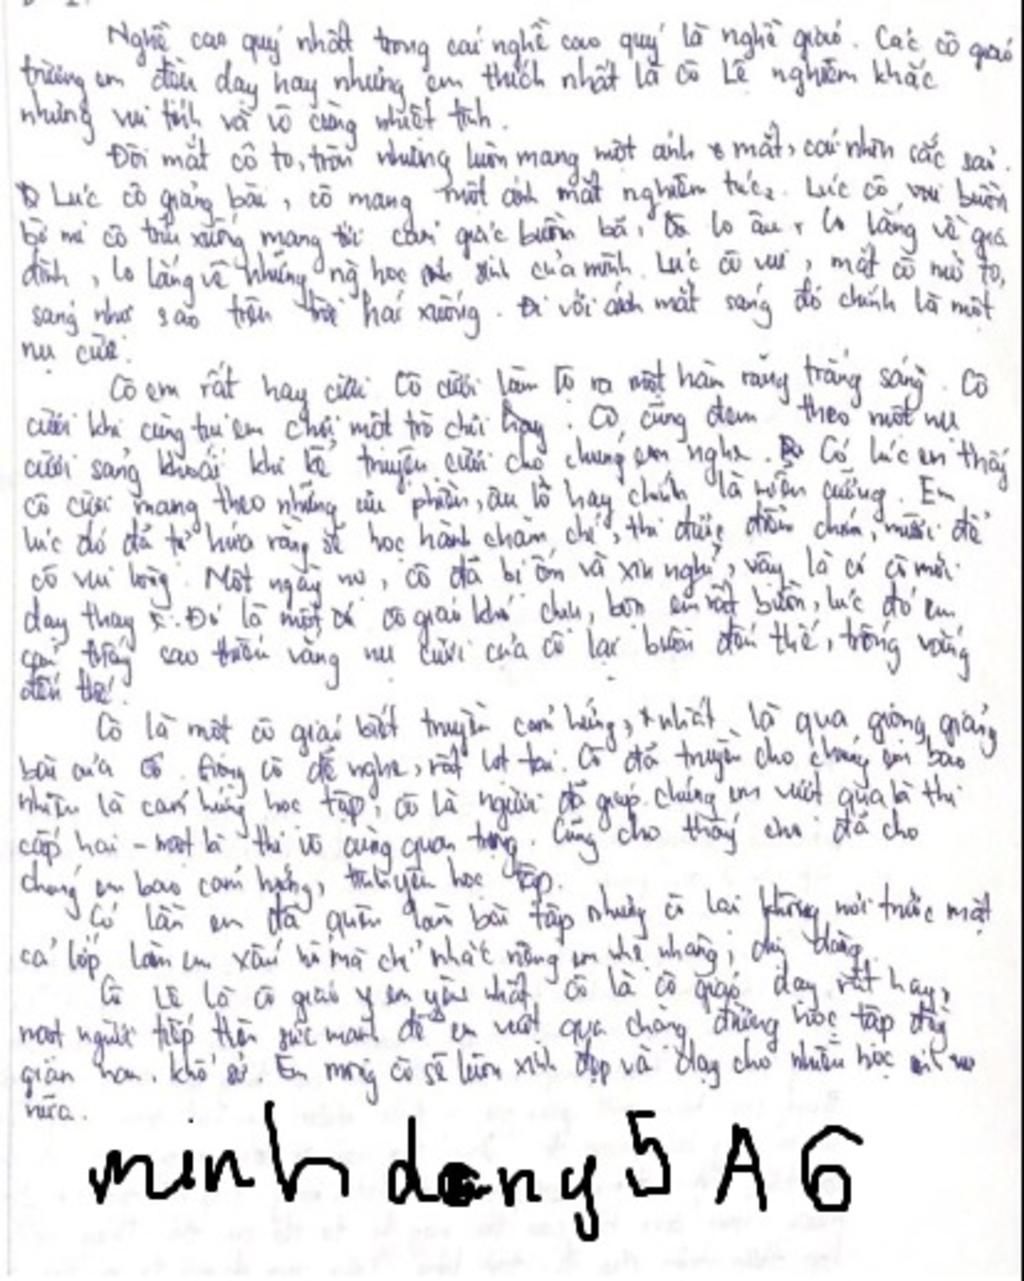 Nghề cao quý nhất trong các nghề cao quý là nghề giáo. Các cô giáo
trường em đều dạy hay nhưng em thích nhất là cô Lê nghiêm khắc
nhưng vui tính và vô cùng nhiệt tình.
Đôi mắt cô to, tròn nhưng luôn mang một ánh mắt, cái nhìn sắc sảo.
Lúc cô giảng bài, cô mang một ánh mắt nghiêm túc. Lúc cô buồn
bờ mi cô trĩu xuống mang tới cảm giác buồn bã, lo âu, lo lắng về gia
đình, lo lắng về những học sinh của mình. Lúc cô vui, mắt cô mở to,
sáng như sao trên trời hái xuống. Đi với ánh mắt sáng đó chính là một
nụ cười.
Cô em rất hay cười. Cô cười làm lộ ra một hàm răng trắng sáng. Cô
cười khi cùng tụi em chơi một trò chơi hay. Cô cũng đem theo một nụ
cười sảng khoái khi kể truyện cười cho chúng em nghe. Có lúc em thấy
cô cười mang theo những ưu phiền, âu lo hay chính là miễn cưỡng. Em
lúc đó đã tự hứa rằng sẽ học hành chăm chỉ, thi được điểm chín, mười để
cô vui lòng. Một ngày nọ, cô đã bị ốm và xin nghỉ, vậy là có cô mới
dạy thay. Đó là một cô giáo khó chịu, bọn em rất buồn, lúc đó em
cảm thấy sao thiếu vắng nụ cười của cô lại buồn đến thế, trống vắng
đến thế!
Cô là một cô giáo biết truyền cảm hứng, nhất là qua giọng giảng
bài của cô. Giọng cô dễ nghe, rất lọt tai. Cô đã truyền cho chúng em bao
nhiêu là cảm hứng học tập, cô là người đã giúp chúng em vượt qua kì thi
cấp hai - một kì thi vô cùng quan trọng. Cũng cho thấy cô đã cho
chúng em bao cảm hứng, tình yêu học tập.
Có lần em đã quên làm bài tập nhưng cô lại không nói trước mặt
cả lớp làm em xấu hổ mà chỉ nhắc riêng em nhẹ nhàng, dịu dàng.
Cô Lê là cô giáo em yêu nhất. Cô là cô giáo dạy rất hay,
một người tiếp thêm sức mạnh để em vượt qua chặng đường học tập đầy
gian nan, khổ sở. Em mong cô sẽ luôn xinh đẹp và dạy cho nhiều học sinh
nữa.
minh dang 5 A 6